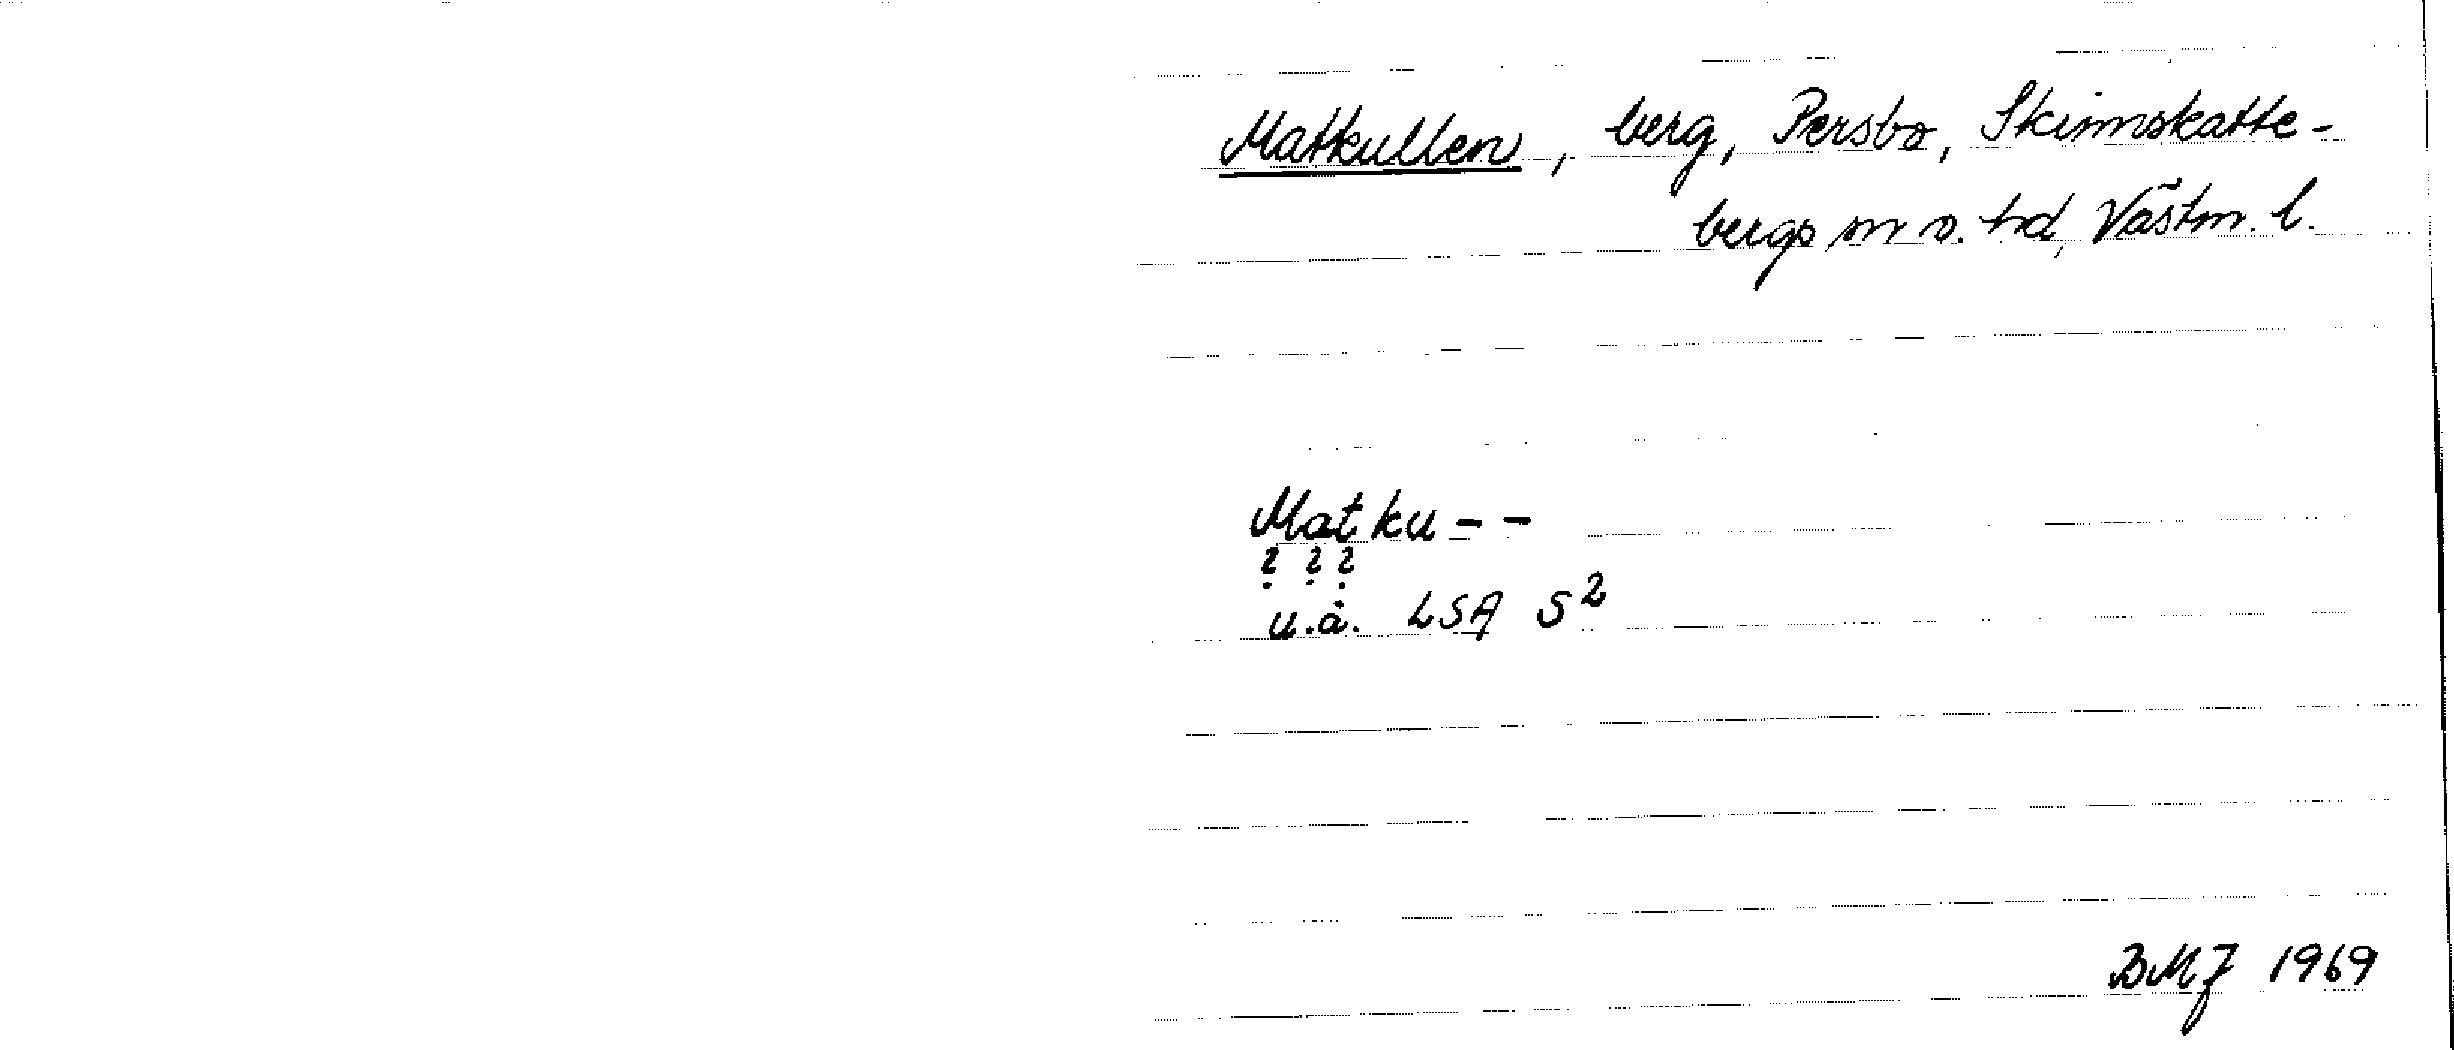 Matkullen, berg, Persbo, Skinnskatte-
bergs sn o. hd, Västm. l.
Matku--
? ? ?
u.å. LSA S2
BMJ 1969